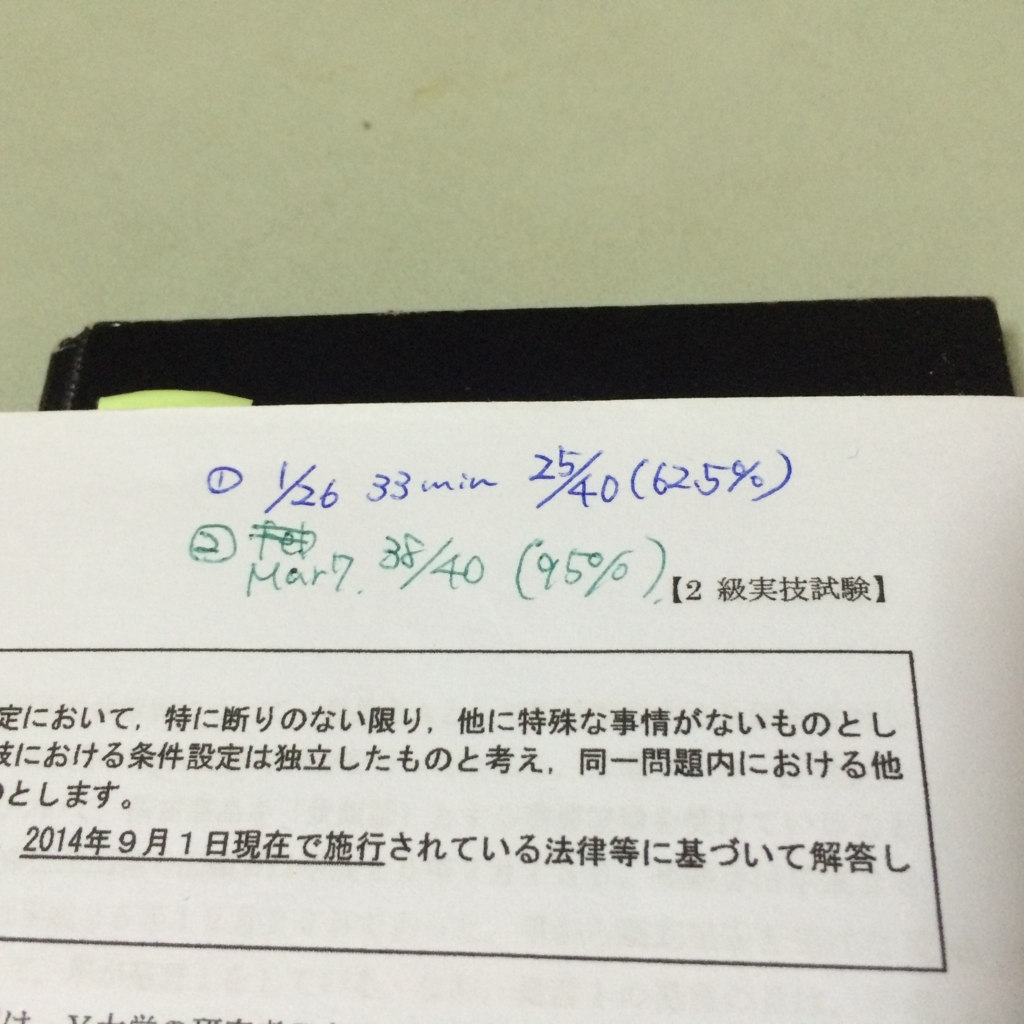 ① 1/26 33min 25/40(62.5%)
② Mar7. 38/40 (95%).
【2 級実技試験】
定において，特に断りのない限り，他に特殊な事情がないものとし
肢における条件設定は独立したものと考え，同一問題内における他
のとします。
2014年９月１日現在で施行されている法律等に基づいて解答し